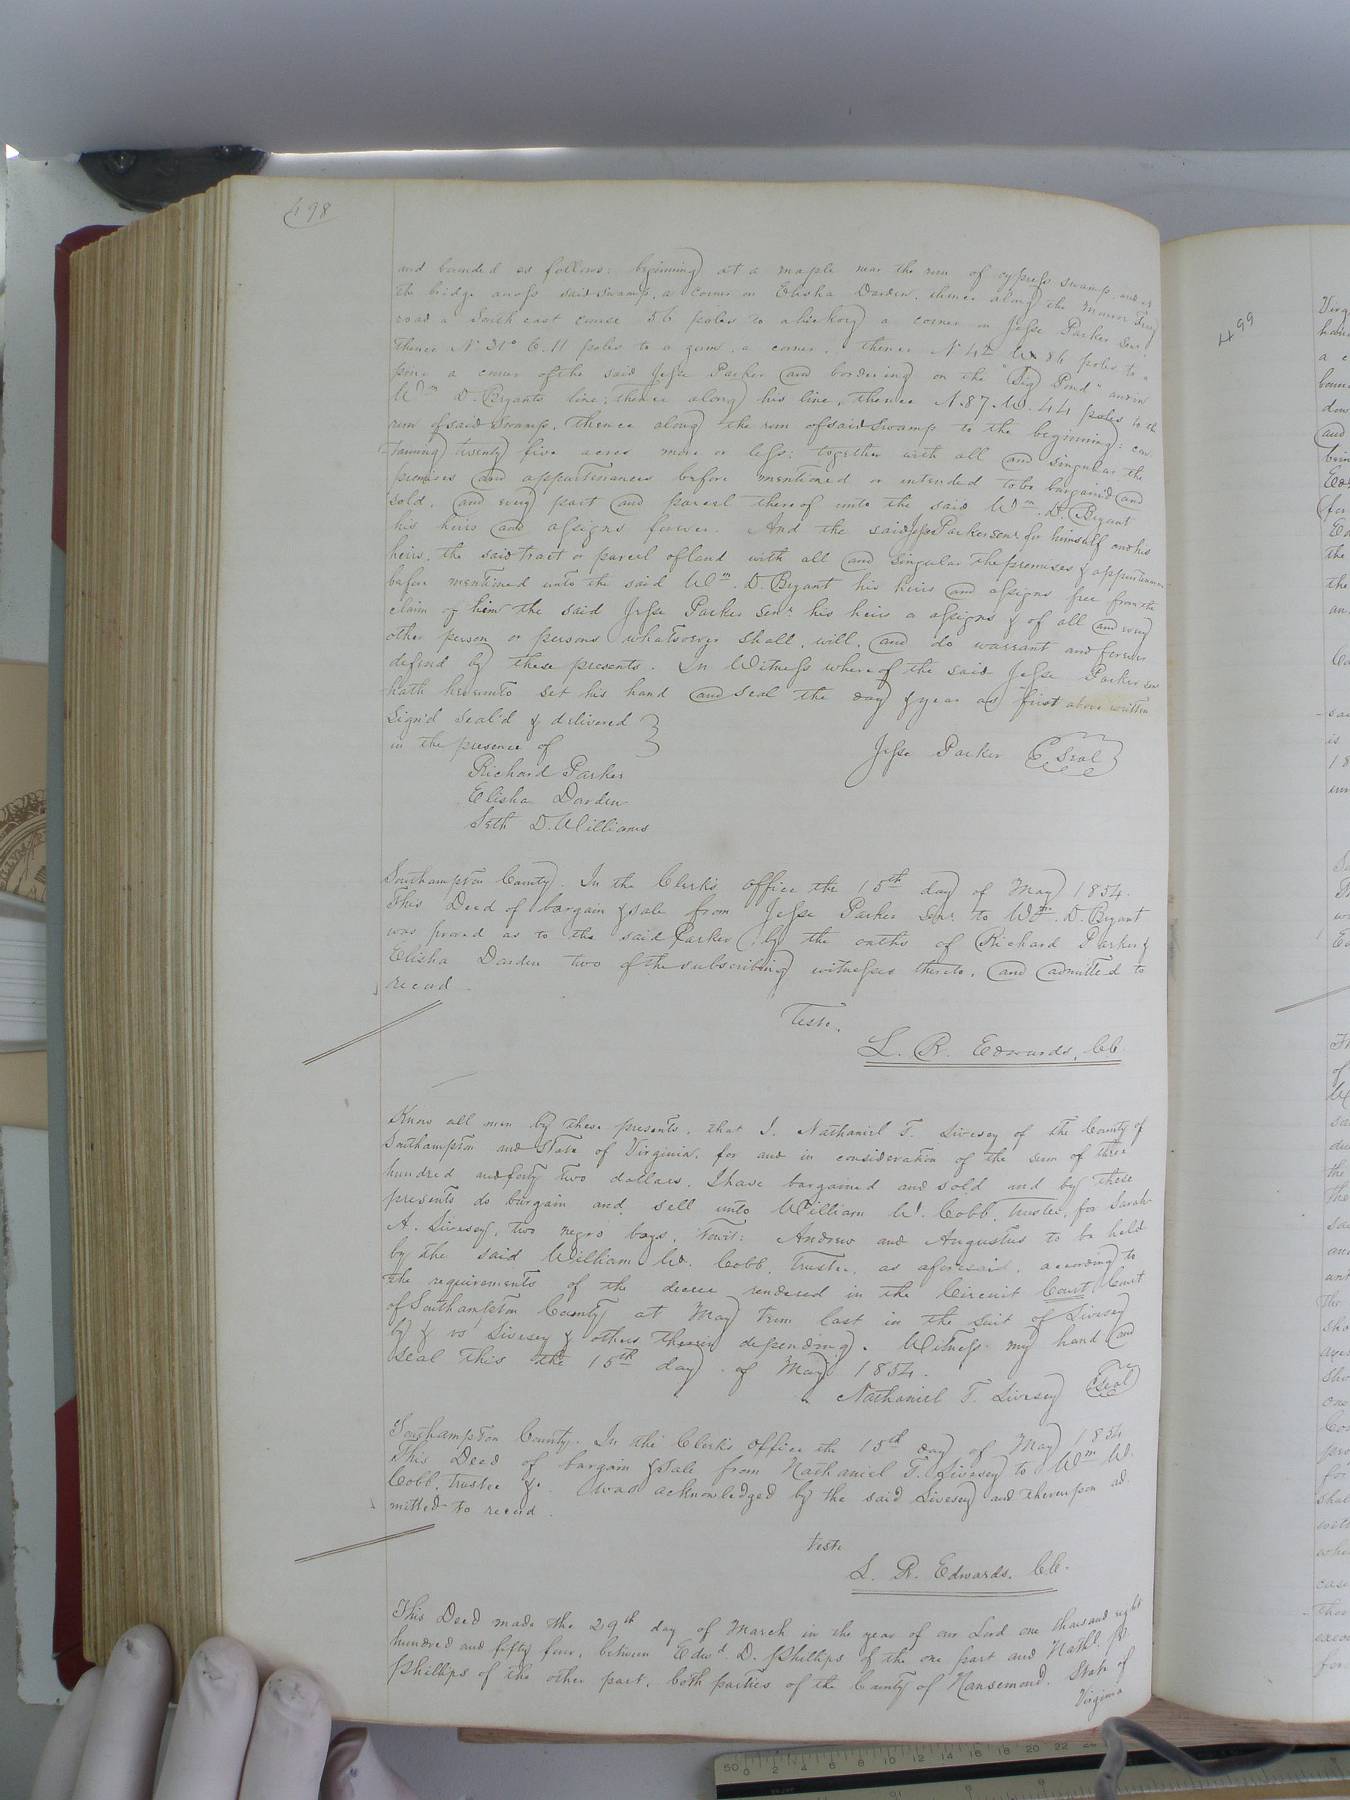 498
and bounded as follows: beginning at a maple near the run of cypress swamp, and at
the bridge across said swamp, a corner on Elisha Darden, thence along the Murrer Ferry
road a South east course 56 poles to a hickory a corner on Jesse Parker Senr.
thence N 31° E. 11 poles to a gum, a corner, thence N 42 W 86 poles, to a
pine a corner of the said Jesse Parker and bordering on the "Big Pond" and on
Wm D. Bryants line; thence along his line, thence N. 87. W. 44 poles to the
run of said swamp, thence along the run of said swamp to the beginning: con
taining twenty five acres more or less: together with all and singular the
premises and appurtenances before mentioned or intended to be bargained and
sold, and every part and parcel thereof unto the said Wm. D. Bryant
his heirs and assigns forever. And the said Jesse Parker senr. for himself and his
heirs, the said tract or parcel of land with all and singular the premises & appurtenances
before mentioned unto the said Wm. D. Bryant his heirs and assigns free from the
claim of him the said Jesse Parker Senr. his heirs & assigns & of all and every
other person or persons whatsoever shall, will, and do warrant and forever
defend by these presents. In Witness whereof the said Jesse Parker senr
hath hereunto set his hand and seal the day & year as first above written
Sign'd Seal'd & delivered
in the presence of
Jesse Parker Seal
Richard Parker
Elisha Darden
Seth D. Williams
Southampton County. In the Clerk's office the 15th day of May 1854.
This Deed of bargain & sale from Jesse Parker Senr. to Wm. D. Bryant
was proved as to the said Parker by the oaths of Richard Parker &
Elisha Darden two of the subscribing witnesses thereto, and admitted to
record.
Teste.
L. R. Edwards, CC.
Know all men by these presents, that I, Nathaniel T. Livesey of the County of
Southampton and State of Virginia, for and in consideration of the sum of three
hundred and forty two dollars, I have bargained and sold and by these
presents do bargain and sell unto William W. Cobb, Trustee, for Sarah
A. Livesey, two negro boys, Towit: Andrew and Augustus to be held
by the said William W. Cobb, Trustee, as aforesaid, according to
the requirements of the decree rendered in the Circuit Court Court
of Southampton County at May Term last in the suit of Livesey
by & vs Livesey & others therein depending. Witness my hand and
seal this the 15th day of May 1854.
Nathaniel T. Livesey Seal
Southampton County. In the Clerk's office the 15th day of May 1854
This Deed of bargain & sale from Nathaniel T. Livesey to Wm W.
Cobb, trustee &c. was acknowledged by the said Livesey and thereupon ad
mitted to record.
Teste
L. R. Edwards. CC.
This Deed made the 29th day of March in the year of our Lord one thousand eight
hundred and fifty four, between Edwd D. Phillips of the one part and Nathl. P.
Phillips of the other part, both parties of the County of Nansemond. State of
Virginia
499